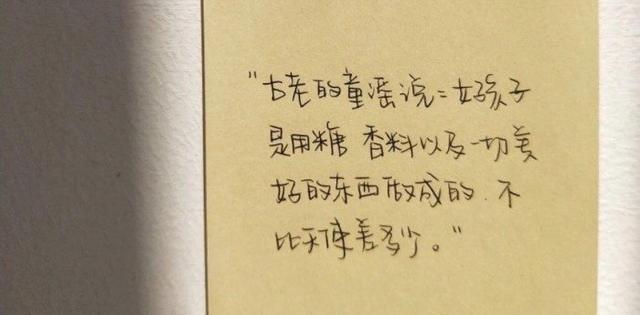 "古老的童谣说：好孩子
是用糖 香料以及一切美
好的东西做成的.不
比天使差多少。"